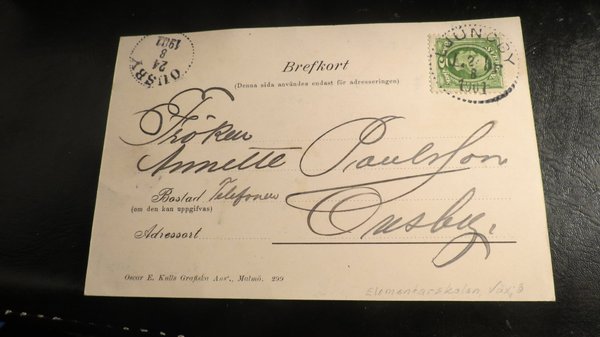 OUSBY
24
8
1901
LJUNGBY
1901
Brefkort
(Denna sida användes endast för adresseringen)
Fröken
Annette Paulsson
Bostad Telefonen
(om den kan uppgifvas)
Ousby.
Adressort
Oscar E. Kulls Grafiska Aff., Malmö. 299
Elementarskolan, Växjö